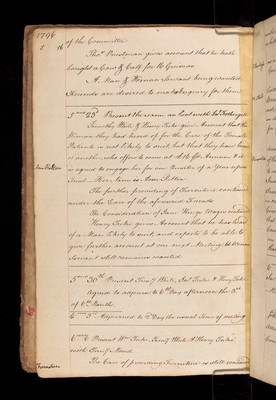 1796
5 16
of the Committee
Thos. Priestman gives account that he hath
bought a Cow & Calf for 16 Guineas
A Man & Woman Servant being wanted
Friends are desired to make Enquiry for them
5 mo 23d Present the same as last with
Timothy Maud & Henry Tuke gives Account that the
Woman they had heard of for the Care of the Female
Patients is not likely to suit, but that they have heard
of another who offers to come at £8 for Annum & it
is agreed to engage her for one Quarter of a Year upon
Trial. Her Name is
The further providing of Furniture continued
under the Care of the aforesaid Friends
The Consideration of Wages continued
Henry Tuke gives Account that he has heard
of a Man likely to suit and expects to be able to
give further account at our next Meeting. A Woman
Servant still remains wanted
5 mo 30th Present Timoy. Maud, & Henry Tuke
Agreed to adjourn to 6th Day afternoon the 3d
of 6th Month
6 mo 3d Adjourned to 2d Day the usual time of meeting
6 mo 6 Present Wm. Tuke, & Henry Tuke
with Timoy. Maud
Furniture
The Care of providing Furniture is still continued